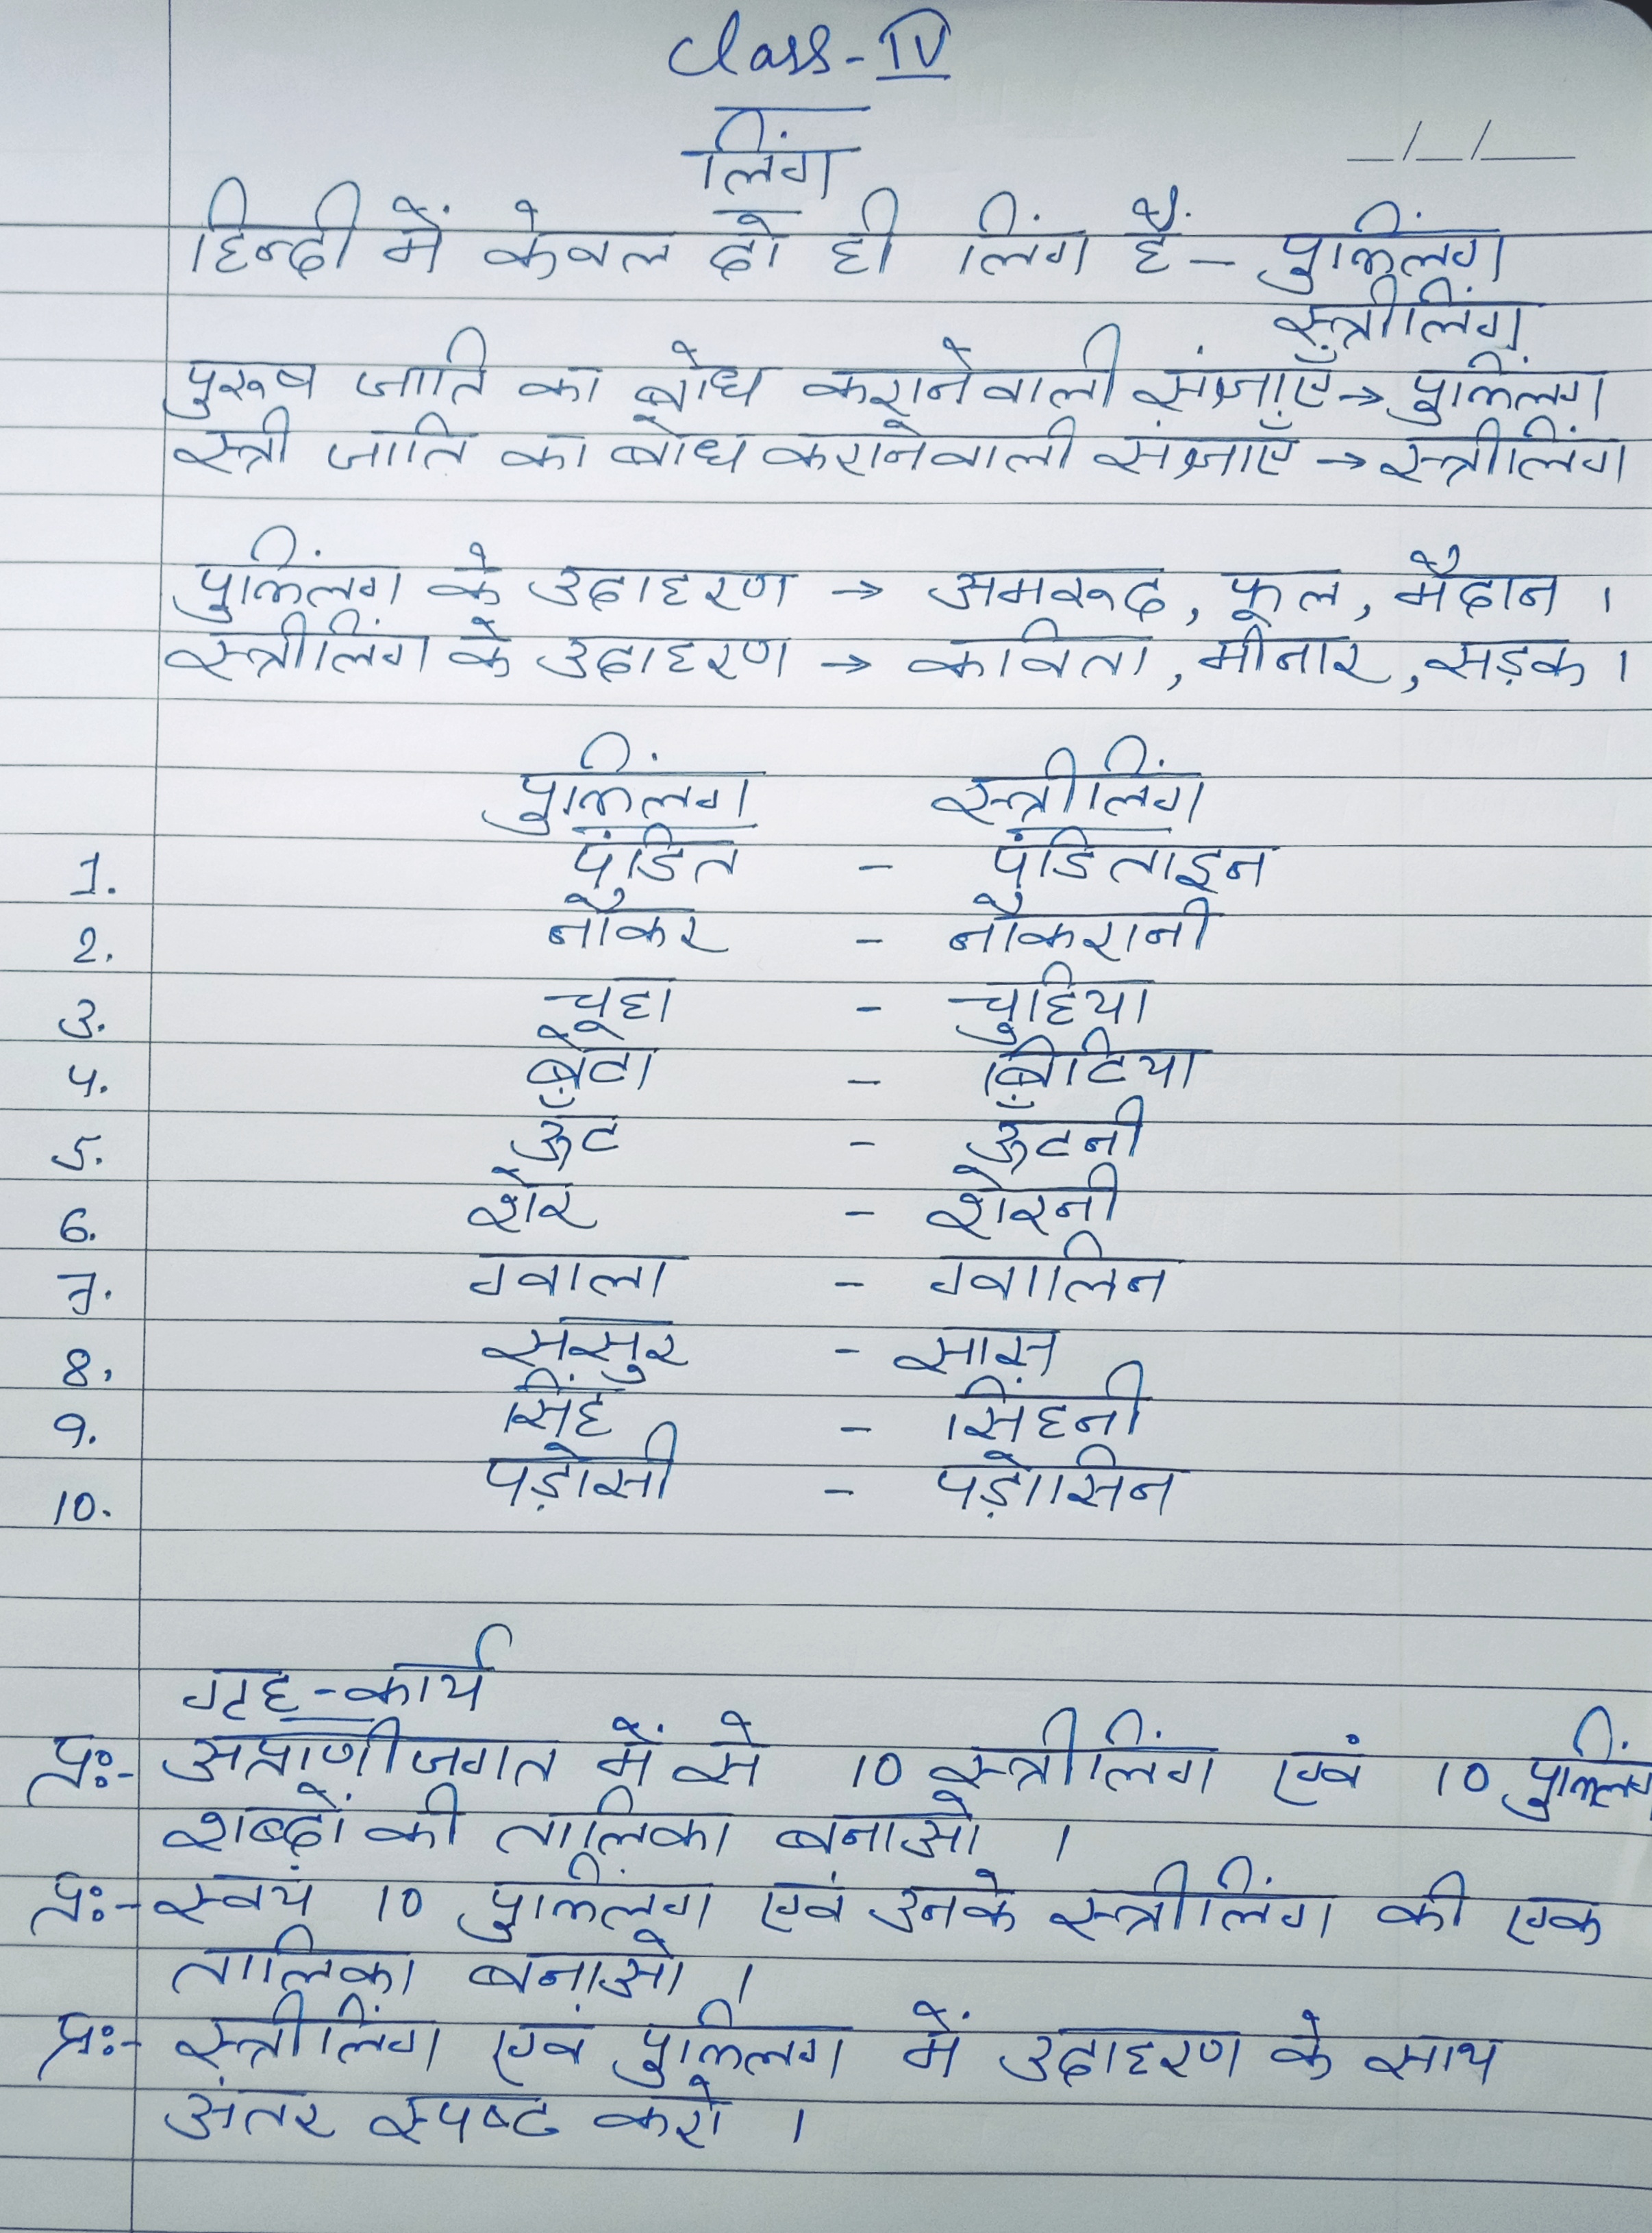 Class - IV
लिंग
_/_/__
हिन्दी में केवल दो ही लिंग हैं - पुल्लिंग
स्त्रीलिंग
पुरूष जाति का बोध करानेवाली संज्ञाएँ → पुल्लिंग
स्त्री जाति का बोध करानेवाली संज्ञाएँ → स्त्रीलिंग
पुल्लिंग के उदाहरण → अमरूद, फूल, मैदान ।
स्त्रीलिंग के उदाहरण → कविता, मीनार, सड़क ।
पुल्लिंग स्त्रीलिंग
1. पंडित - पंडिताइन
2. नौकर - नौकरानी
3. चूहा - चुहिया
4. बेटा - बिटिया
5. ऊँट - ऊँटनी
6. शेर - शेरनी
7. ग्वाला - ग्वालिन
8. ससुर - सास
9. सिंह - सिंहनी
10. पड़ोसी - पड़ोसिन
गृह-कार्य
प्र:- अप्राणीजगत में से 10 स्त्रीलिंग एवं 10 पुल्लिंग
शब्दों की तालिका बनाओ ।
प्र:- स्वयं 10 पुल्लिंग एवं उनके स्त्रीलिंग की एक
तालिका बनाओ ।
प्र:- स्त्रीलिंग एवं पुल्लिंग में उदाहरण के साथ
अंतर स्पष्ट करो ।